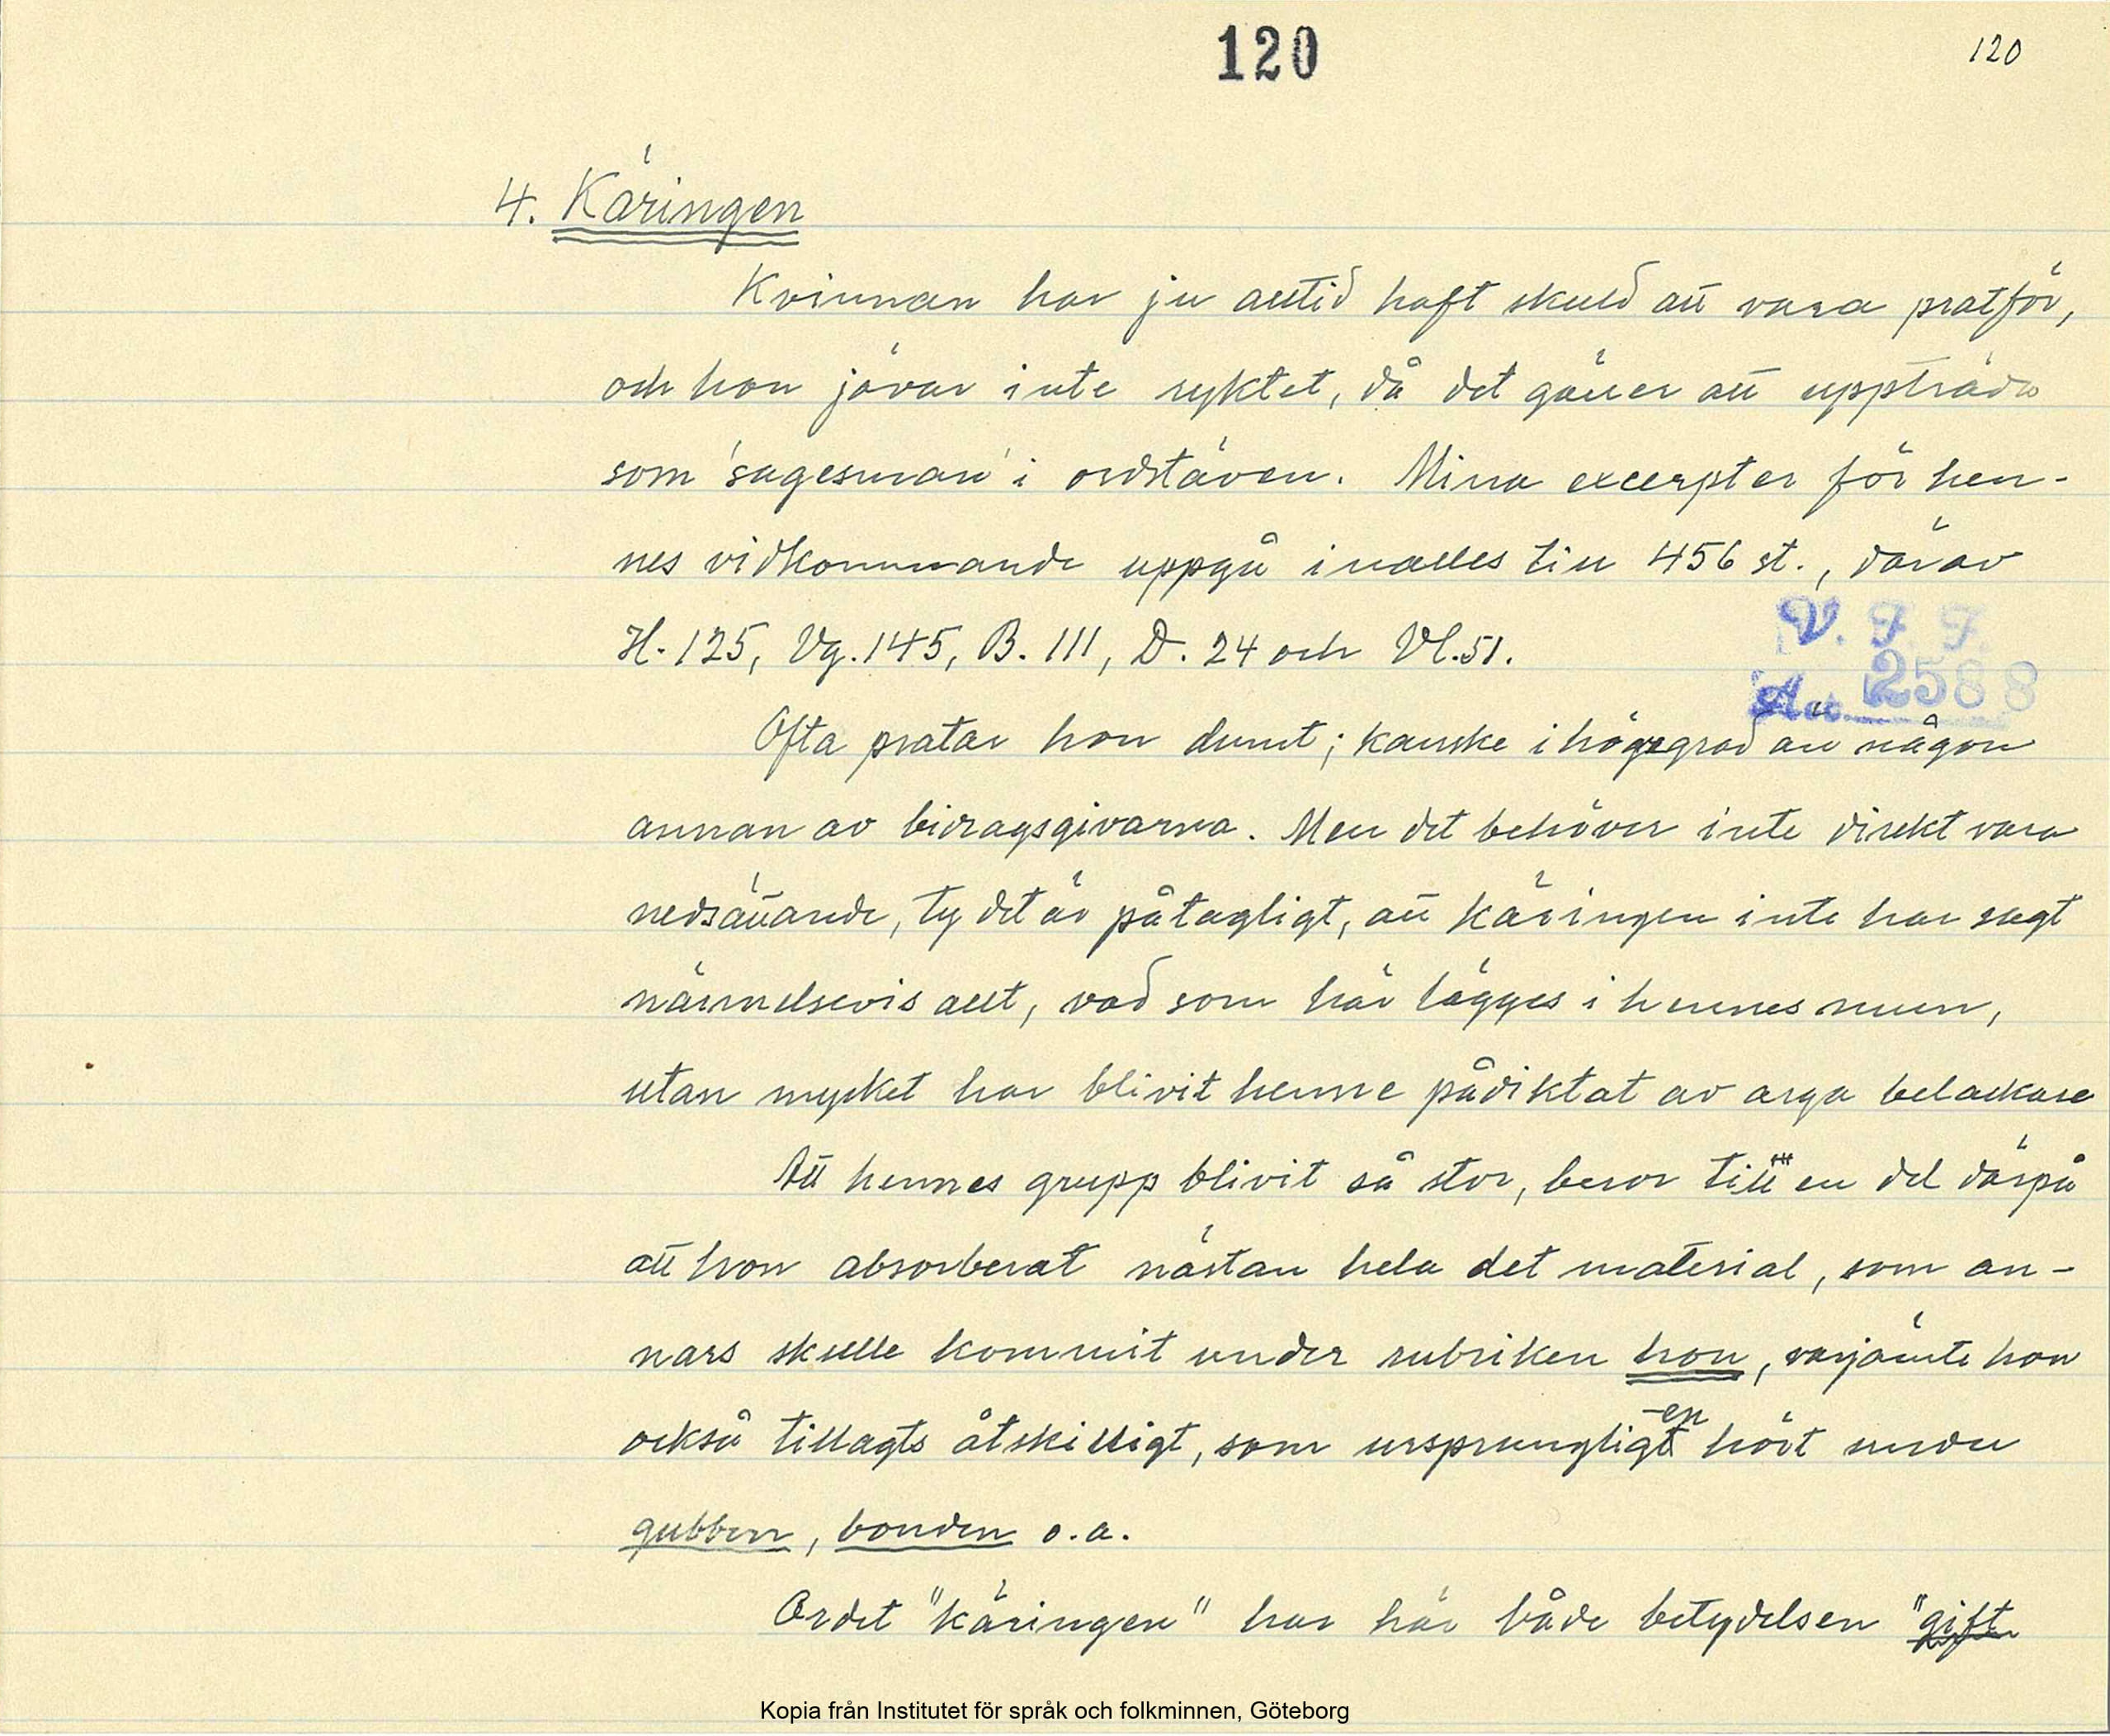 120
120
4. Käringen
Kvinnan har ju alltid haft skuld att vara pratför,
och hon jävar inte ryktet, då det gäller att uppträda
som 'sagesman' i ordstäven. Mina excerpter för hen-
nes vidkommande uppgå inalles till 456 st., därav
H. 125, Vg. 145, B. 111, D. 24 och Vl. 51.
V. F. F.
Acc. 2588
Ofta pratar hon dumt; kanske i högre grad än någon
annan av bidragsgivarna. Men det behöver inte direkt vara
nedsättande, ty det är påtagligt, att käringen inte har sagt
nämndsevis allt, vad som här lägges i hennes mun,
utan mycket har blivit henne pådiktat av arga belackare
Att hennes grupp blivit så stor, beror till en del därpå
att hon absorberat nästan hela det material, som an-
nars skulle kommit under rubriken hon, varjämte hon
också tillagts åtskilligt, som ursprungligen hört under
gubben, bonden o.a.
Ordet "käringen" har här både betydelsen "gift
Kopia från Institutet för språk och folkminnen, Göteborg